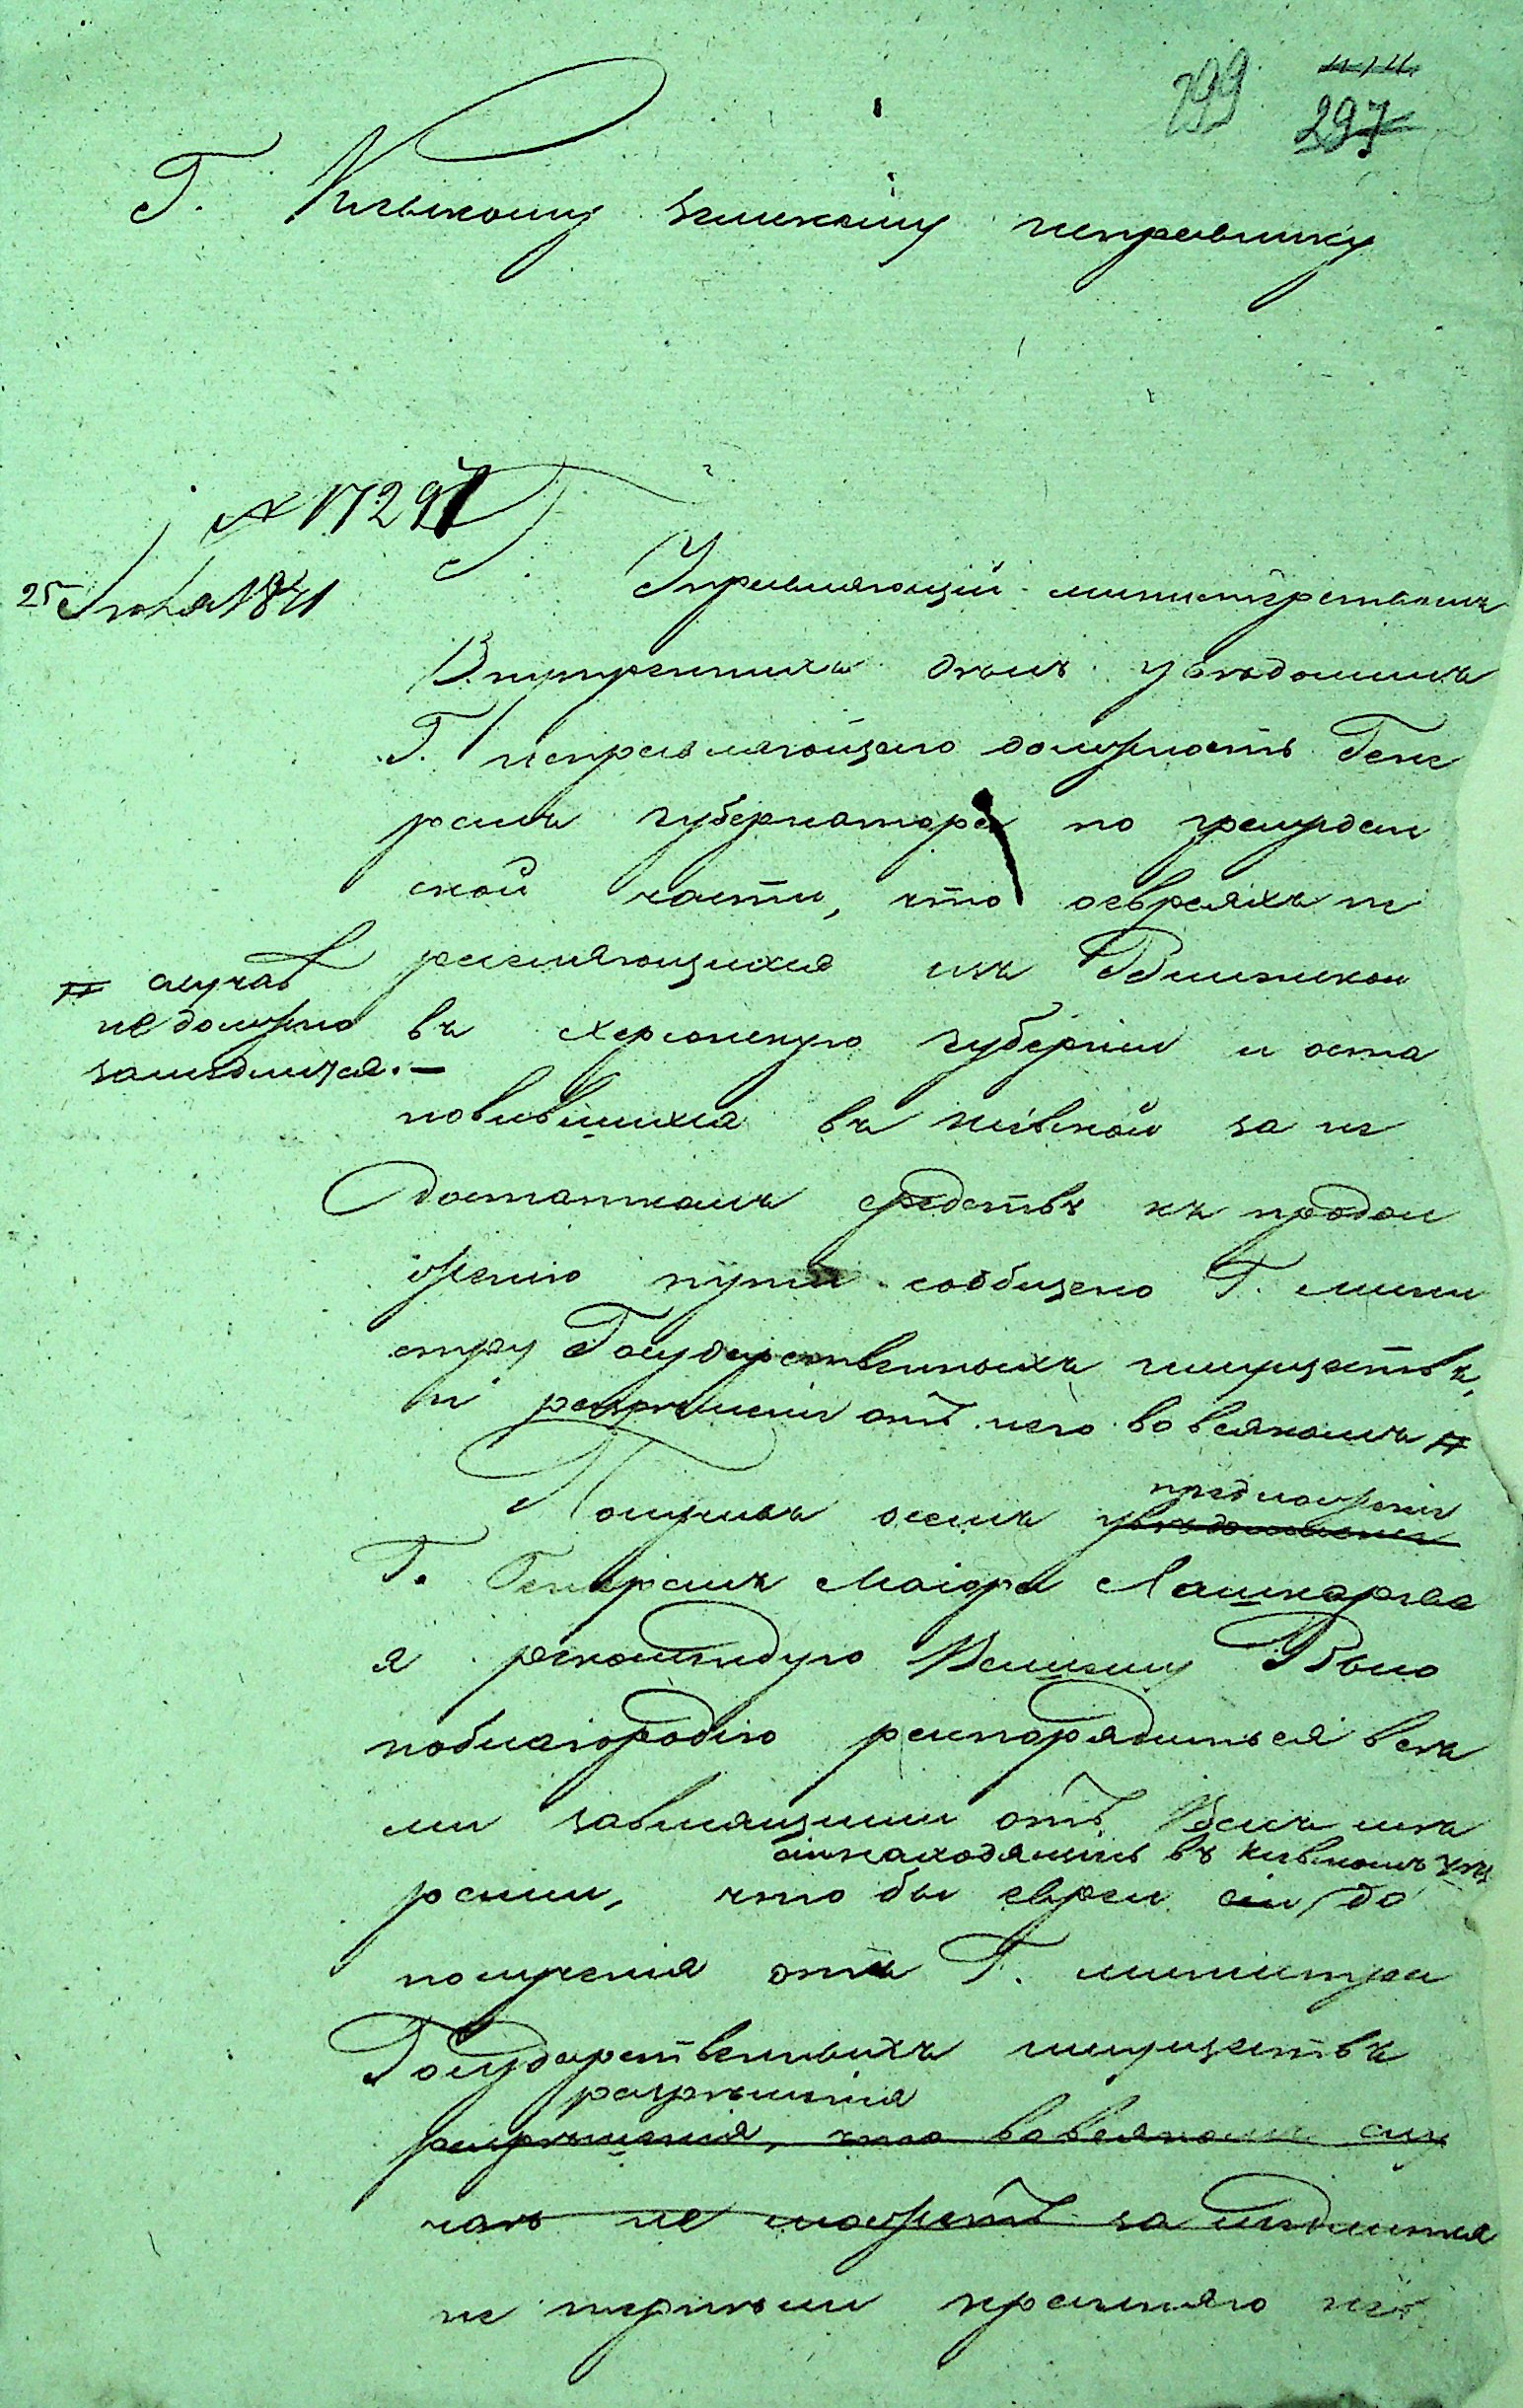 299
297
Г. Кіевскому земскому исправнику
№ 17297
25 Іюня 1841
Г. Управляющій министерствомъ
Внутреннихъ дѣлъ увѣдомилъ
Г. исправляющаго должность Гене
ралъ губернатора по граждан
ской части, что о евреяхъ пе
реселяющихся изъ Виленской
въ Херсонскую губернію и оста
новившихся въ Кіевской за не
достаткомъ средствъ къ продол
женію пути сообщено Г. мини
стру Государственныхъ имуществъ,
и разрѣшеніе отъ него во всякомъ #
# случаѣ
не должно
замедлиться. —
Получивъ о семъ увѣдомленіе
предложеніе
Г. Генералъ Маіора Лашкарева
я рекомендую Вашему Высо
коблагородію распорядиться всѣ
ми зависящими отъ Васъ мѣ
находящіеся въ Кіевскомъ
рами, что бы евреи сіи до
полученія отъ Г. министра
Государственныхъ имуществъ
разрѣшенія
разрѣшенія, что во всякомъ слу
чаѣ не можетъ замедлиться
не терпѣли крайняго не